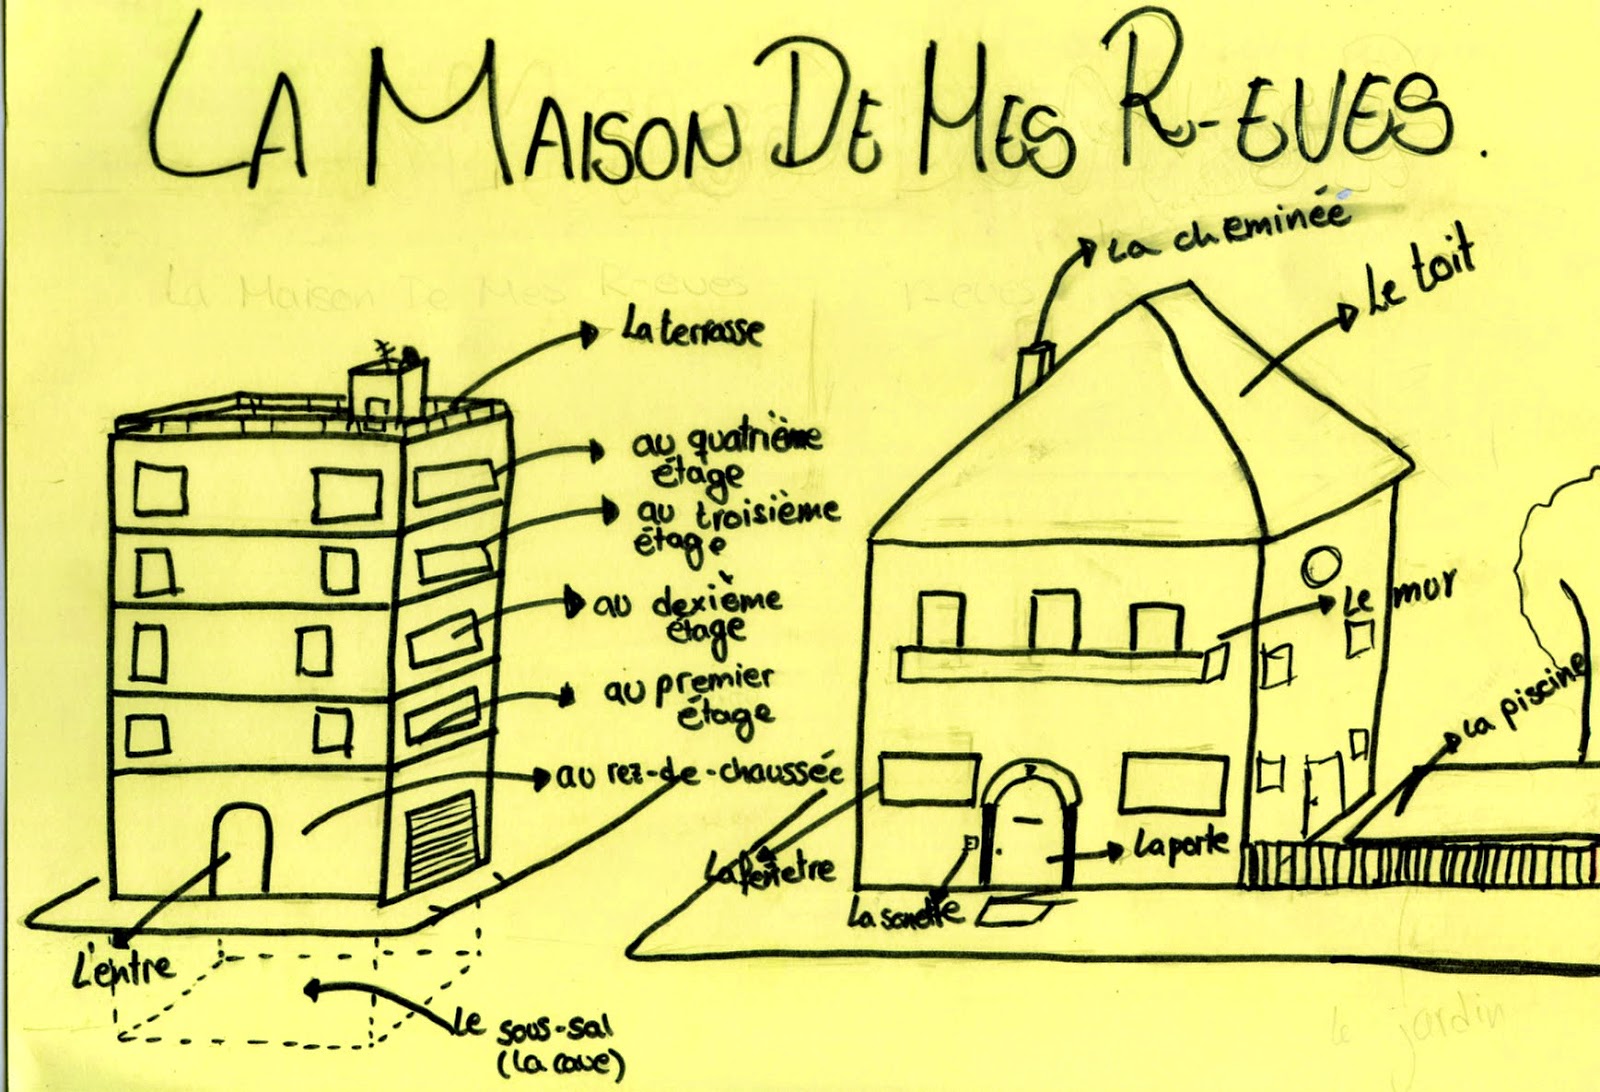 LA MAISON DE MES R-EVES.
La Maison De Mes R-eves
r-eves
La cheminéé
Le toit
La terrasse
au quatrième
étage
au troisième
étage
au dexième
étage
au premier
étage
au rez-de-chaussée
Le mur
La piscine
La fenetre
La porte
La sonette
L'entre
Le sous-sal
(La cave)
le jardin